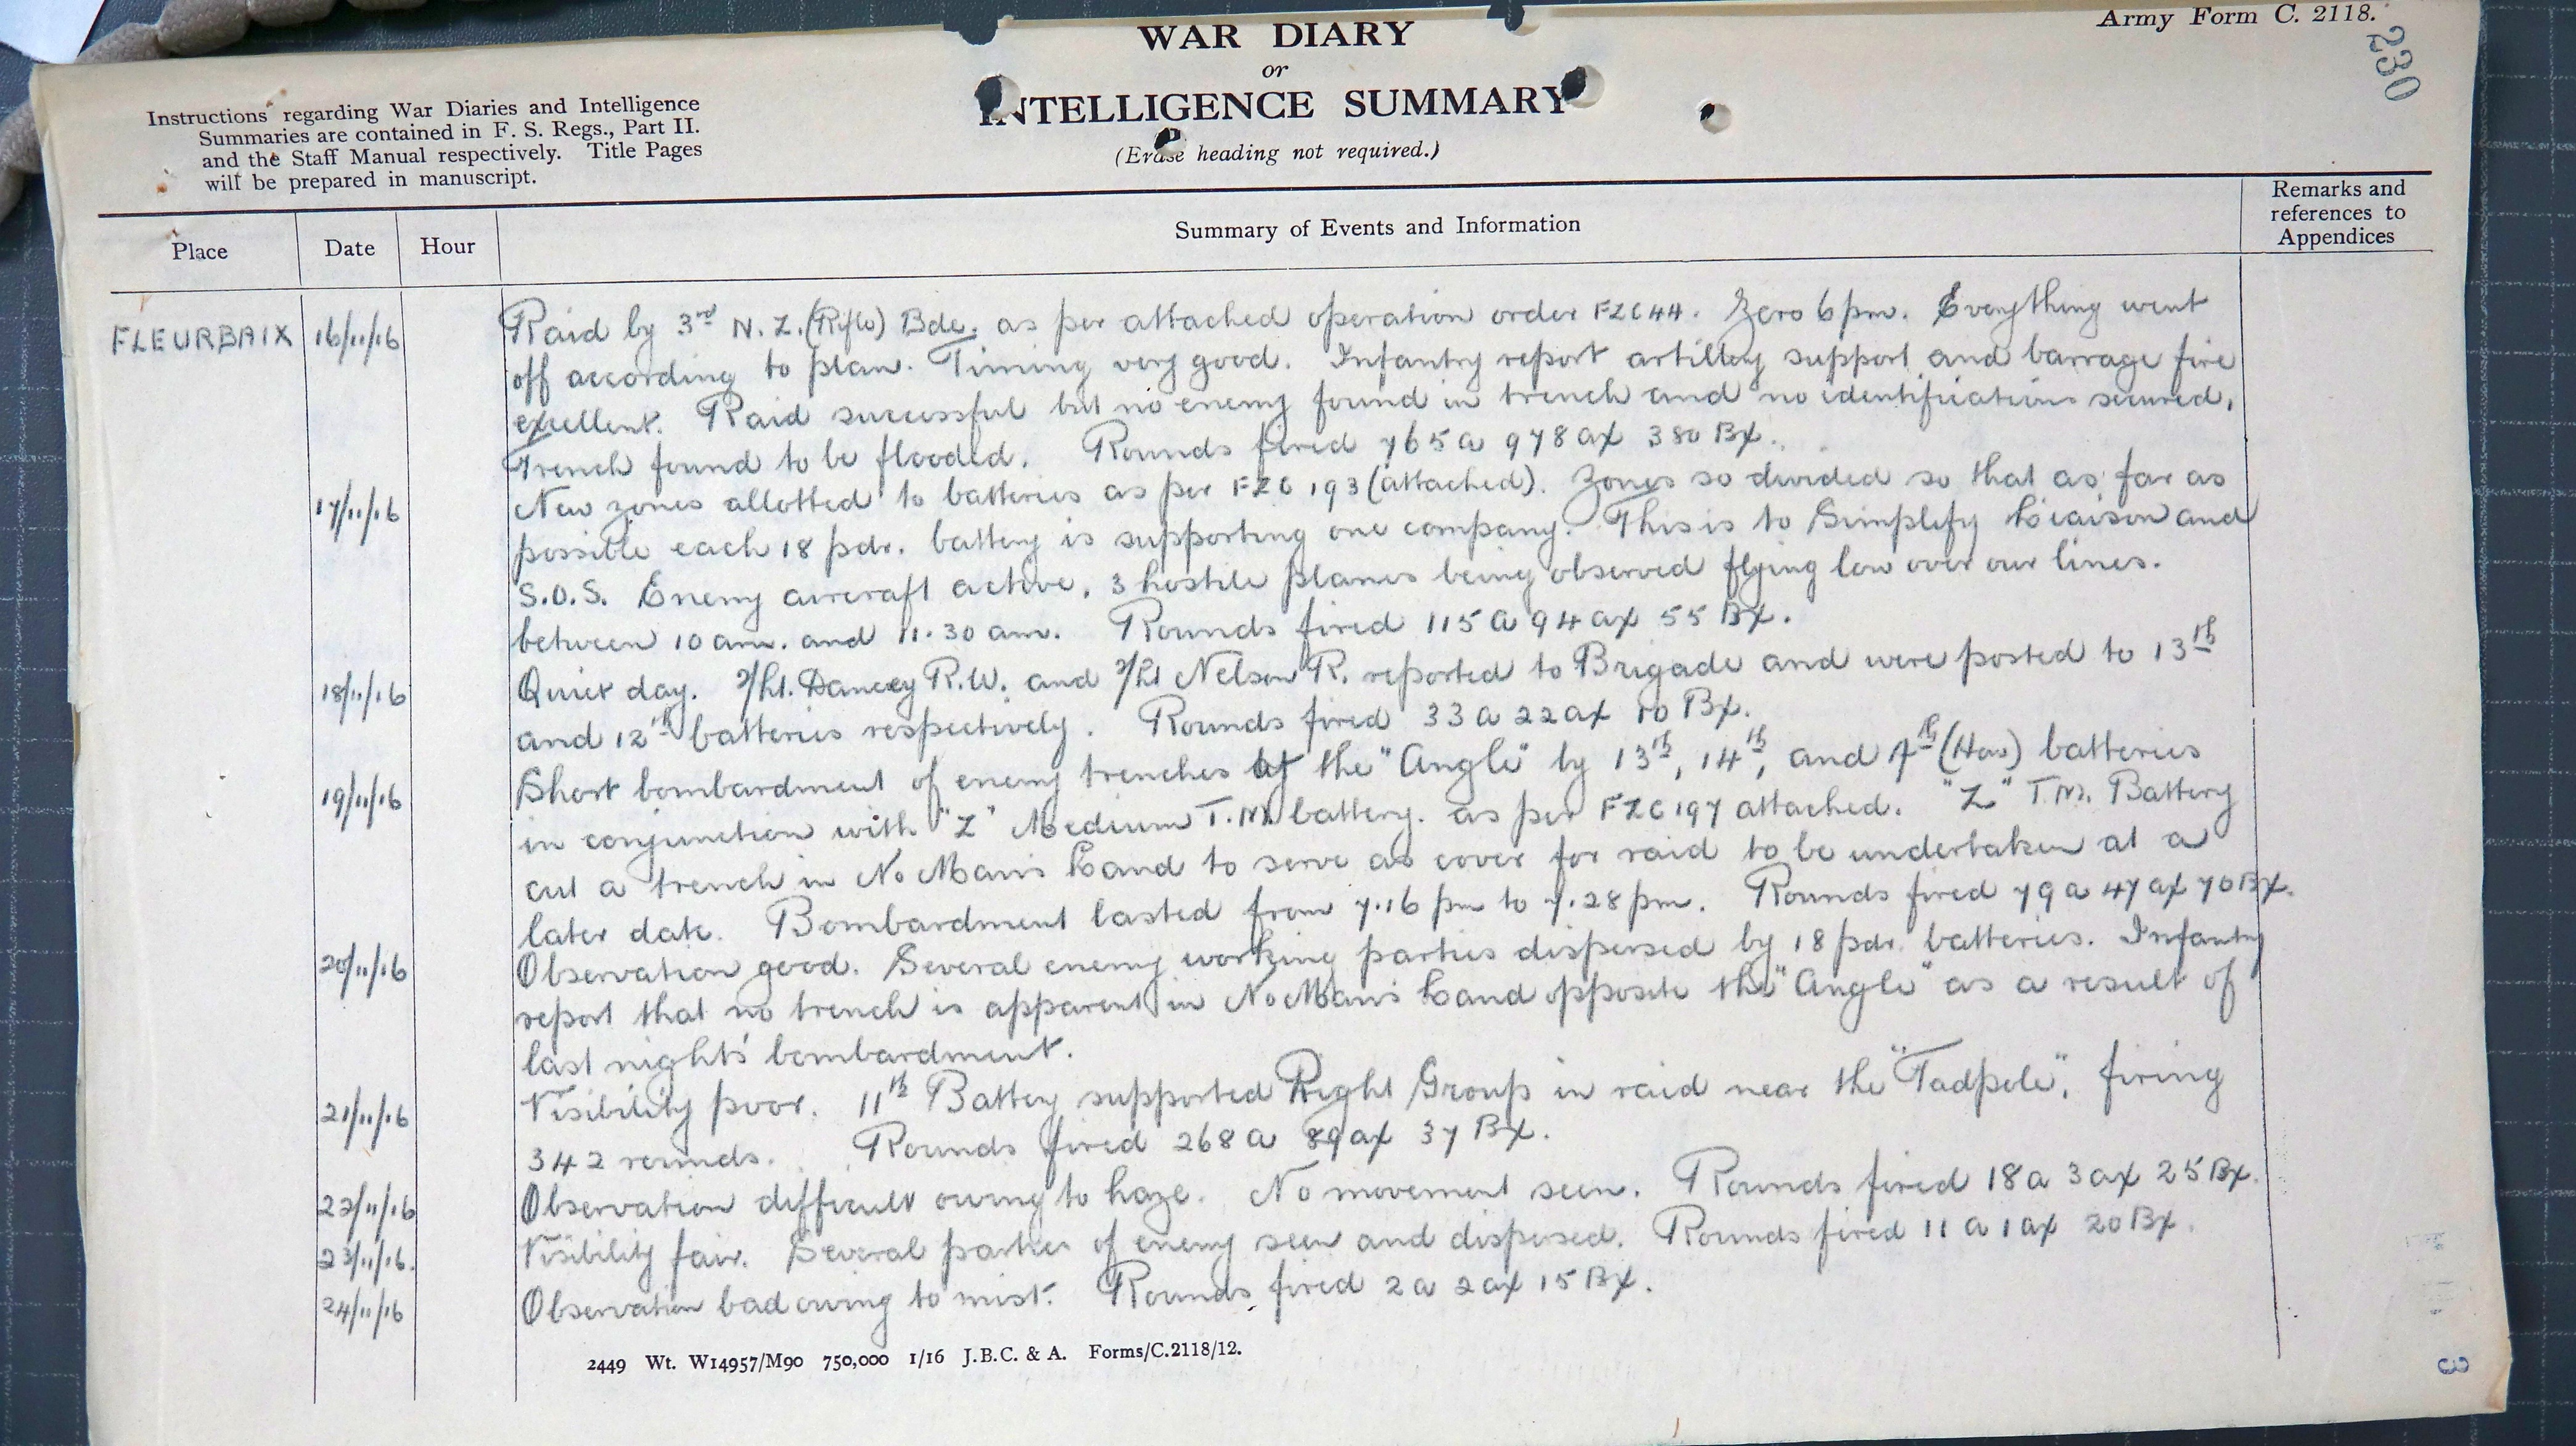 Army Form C. 2118.
230
WAR DIARY
or
INTELLIGENCE SUMMARY
(Erase heading not required.)
Instructions regarding War Diaries and Intelligence
Summaries are contained in F. S. Regs., Part II.
and the Staff Manual respectively. Title Pages
will be prepared in manuscript.
Place Date Hour Summary of Events and Information Remarks and references to Appendices
FLEURBAIX 16/11/16 Raid by 3rd N.Z. (Rifle) Bde. as per attached operation order FZC 44. Zero 6 pm. Everything went
off according to plan. Timing very good. Infantry report artillery support and barrage fire
excellent. Raid successful but no enemy found in trench and no identifications secured,
Trench found to be flooded. Rounds fired 765 a 978 ax 380 Bx.
17/11/16 New zones allotted to batteries as per FZC 193 (attached). Zones so divided so that as far as
possible each 18 pdr. battery is supporting one company. This is to Simplify Liaison and
S.O.S. Enemy aircraft active, 3 hostile planes being observed flying low over our lines.
between 10 am. and 11.30 am. Rounds fired 115 a 94 ax 55 Bx.
18/11/16 Quiet day. 2/Lt. Dancey R.W. and 2/Lt Nelson R. reported to Brigade and were posted to 13th
and 12th batteries respectively. Rounds fired 33 a 22 ax 10 Bx.
19/11/16 Short bombardment of enemy trenches at the "Angle" by 13th, 14th, and 4th (How) batteries
in conjunction with "Z" Medium T.M. battery. as per FZC 197 attached. "Z" T.M. Battery
cut a trench in No Man's Land to serve as cover for raid to be undertaken at a
later date. Bombardment lasted from 7.16 pm to 7.28 pm. Rounds fired 79 a 47 ax 70 Bx.
20/11/16 Observation good. Several enemy working parties dispersed by 18 pdr. batteries. Infantry
report that no trench is apparent in No Man's Land opposite the "Angle" as a result of
last night's bombardment.
21/11/16 Visibility poor. 11th Battery supported Right Group in raid near the "Tadpole", firing
342 rounds. Rounds fired 268 a 89 ax 37 Bx.
22/11/16 Observation difficult owing to haze. No movement seen. Rounds fired 18 a 3 ax 25 Bx.
23/11/16. Visibility fair. Several parties of enemy seen and dispersed. Rounds fired 11 a 1 ax 20 Bx.
24/11/16 Observation bad owing to mist. Rounds fired 2 a 2 ax 15 Bx.
2449 Wt. W14957/M90 750,000 1/16 J.B.C. & A. Forms/C.2118/12.
3